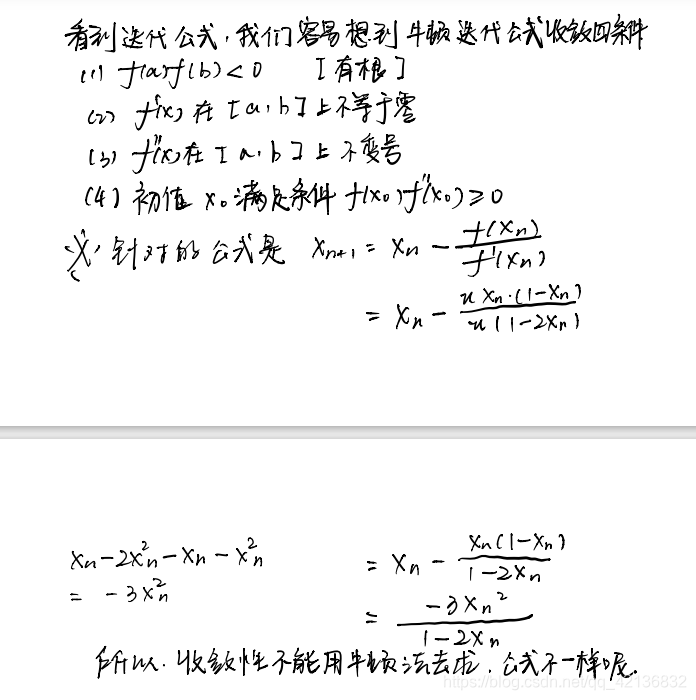 看到迭代公式,我们容易想到牛顿迭代公式收敛的条件
(1) f(a)f(b)<0 [有根]
(2) f'(x) 在 [a,b]上不等于零
(3) f''(x)在[a,b]上不变号
(4) 初值 x₀ 满足条件 f(x₀)f''(x₀)≥0
针对的公式是 xₙ₊₁ = xₙ - f(xₙ)/f'(xₙ)
= xₙ - u xₙ·(1-xₙ)/u(1-2xₙ)
xₙ-2xₙ²-xₙ-xₙ²
= -3xₙ²
= xₙ - xₙ(1-xₙ)/1-2xₙ
= -3xₙ²/1-2xₙ
所以.收敛性不能用牛顿法去求.公式不一样呢.
https://blog.csdn.net/qq_42136832